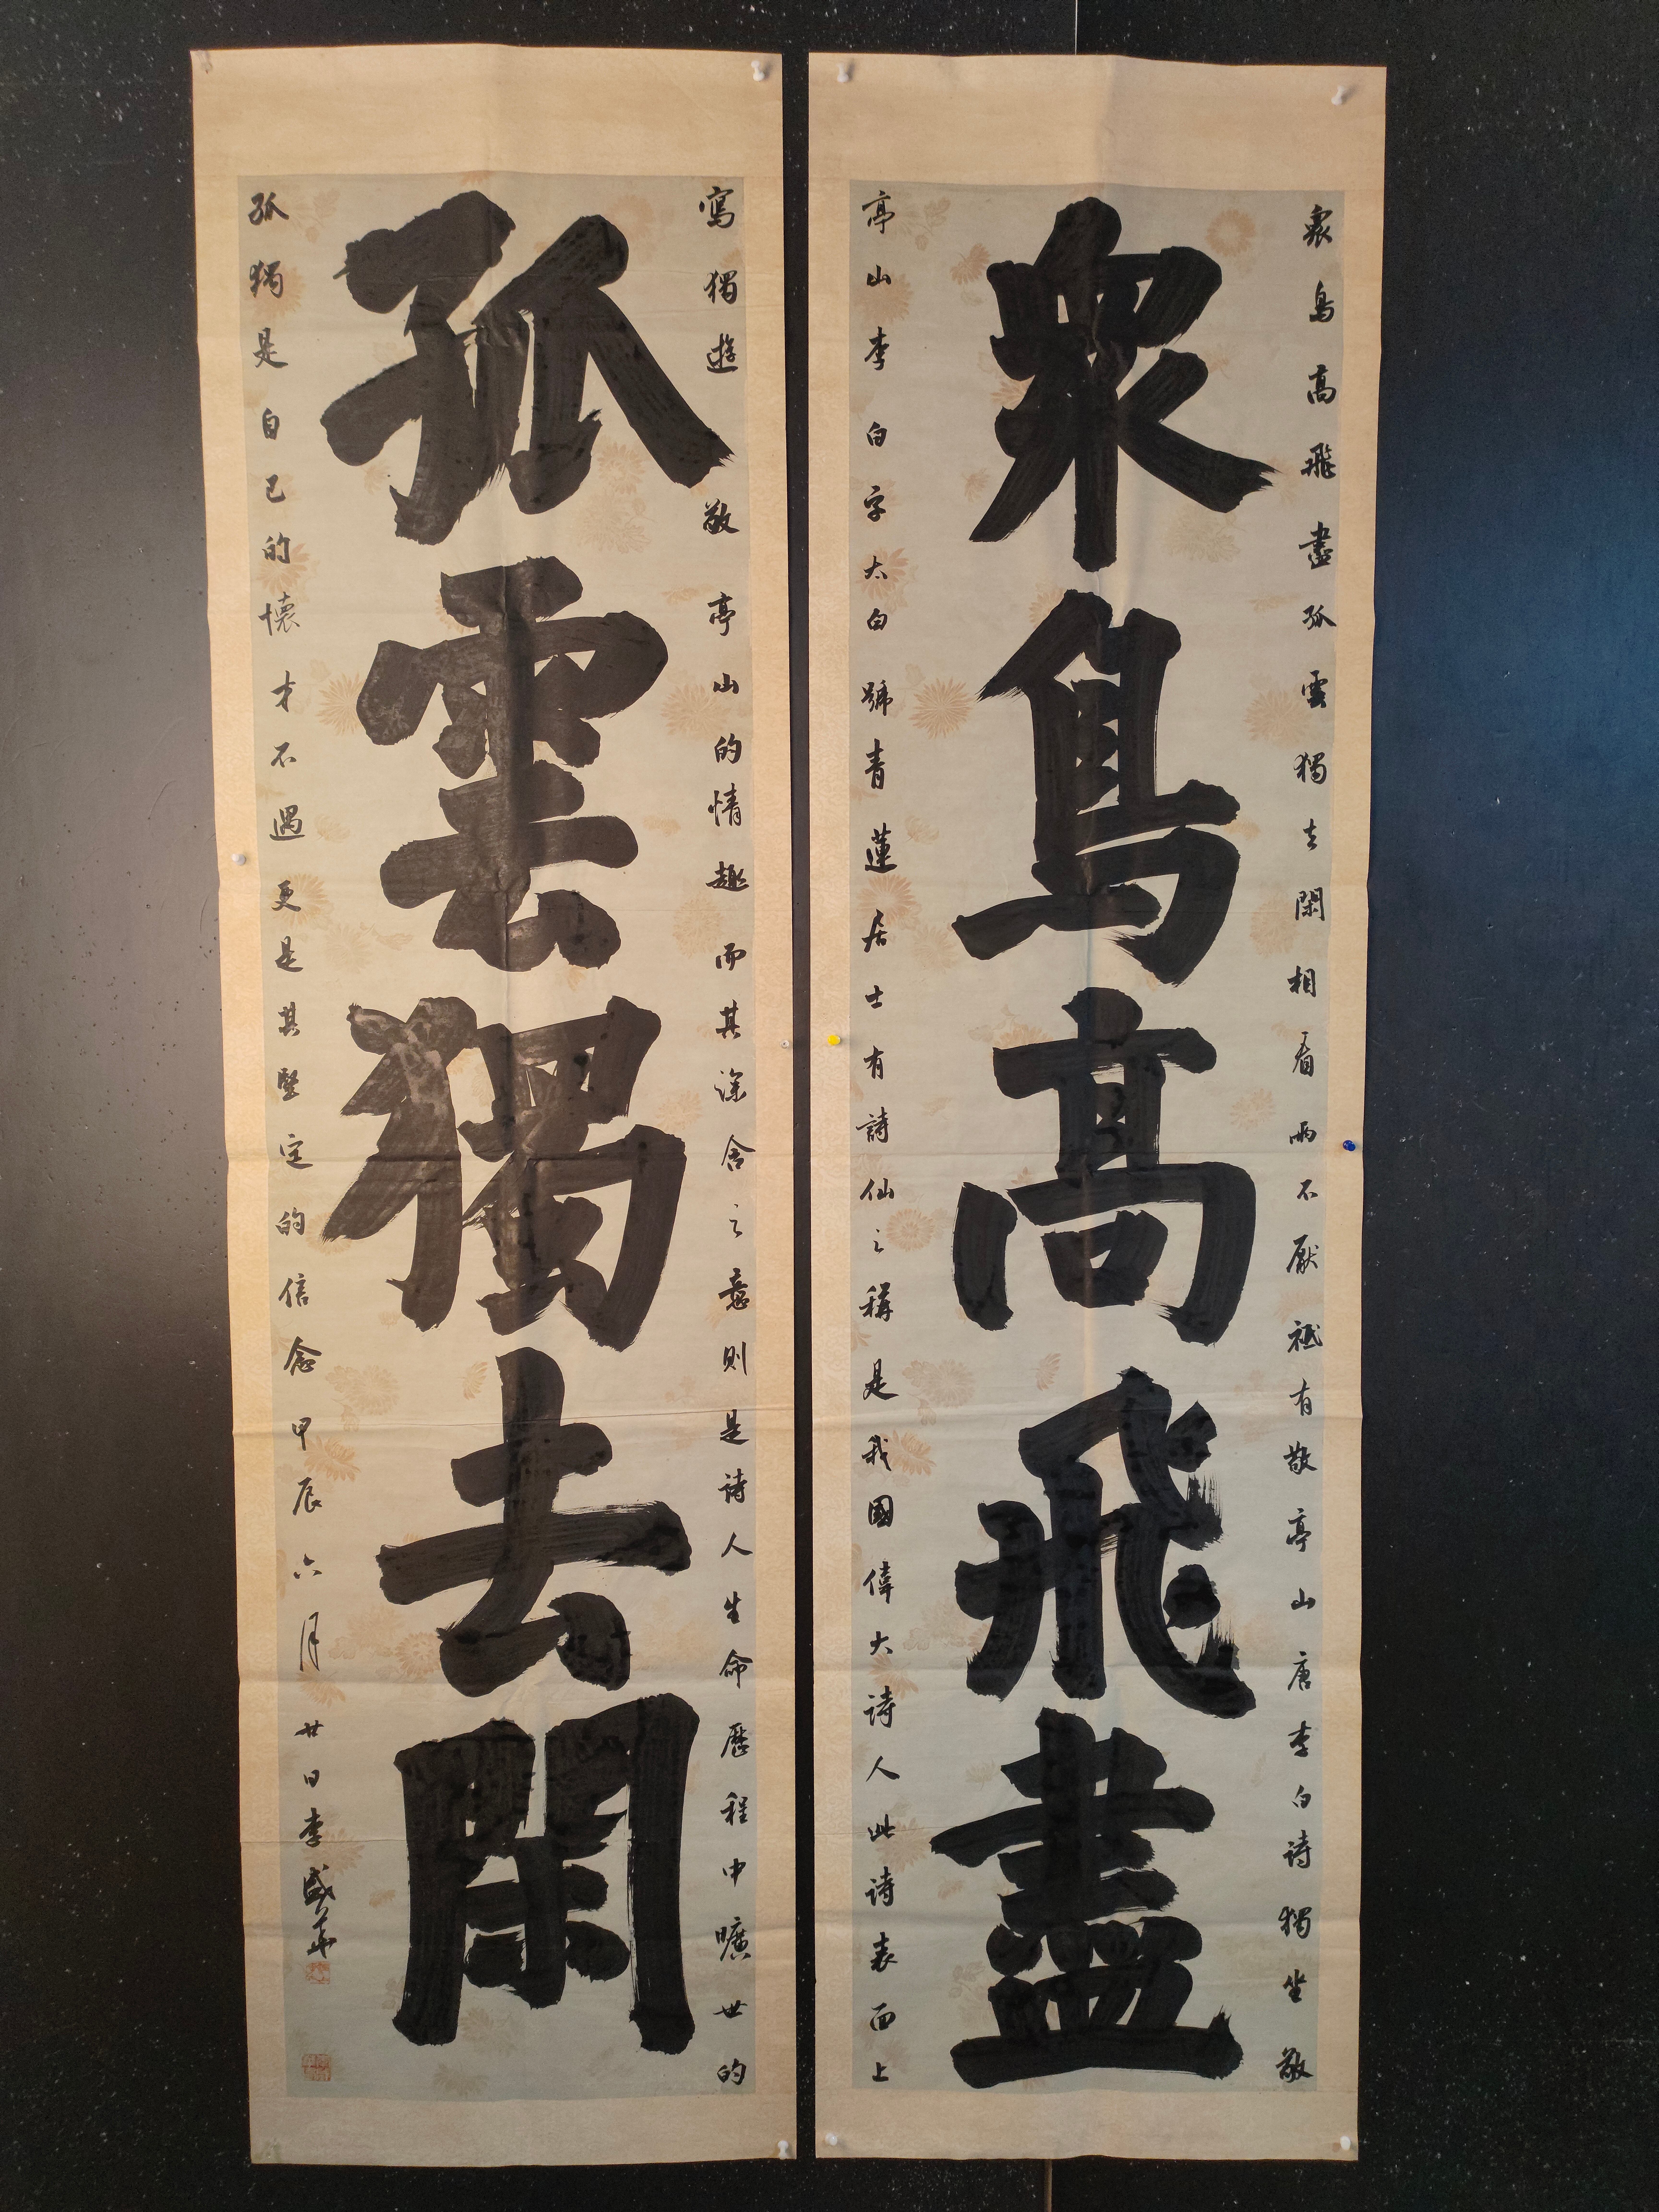 衆鳥高飛盡孤雲獨去閑相看兩不厭祗有敬亭山唐李白詩獨坐敬
衆鳥高飛盡
亭山李白字太白號青蓮居士有詩仙之稱是我國偉大詩人此詩表面上
寫獨遊敬亭山的情趣而其深含之意則是詩人生命歷程中曠世的
孤雲獨去閑
孤獨是自己的懷才不遇更是其堅定的信念甲辰六月廿日李盛華